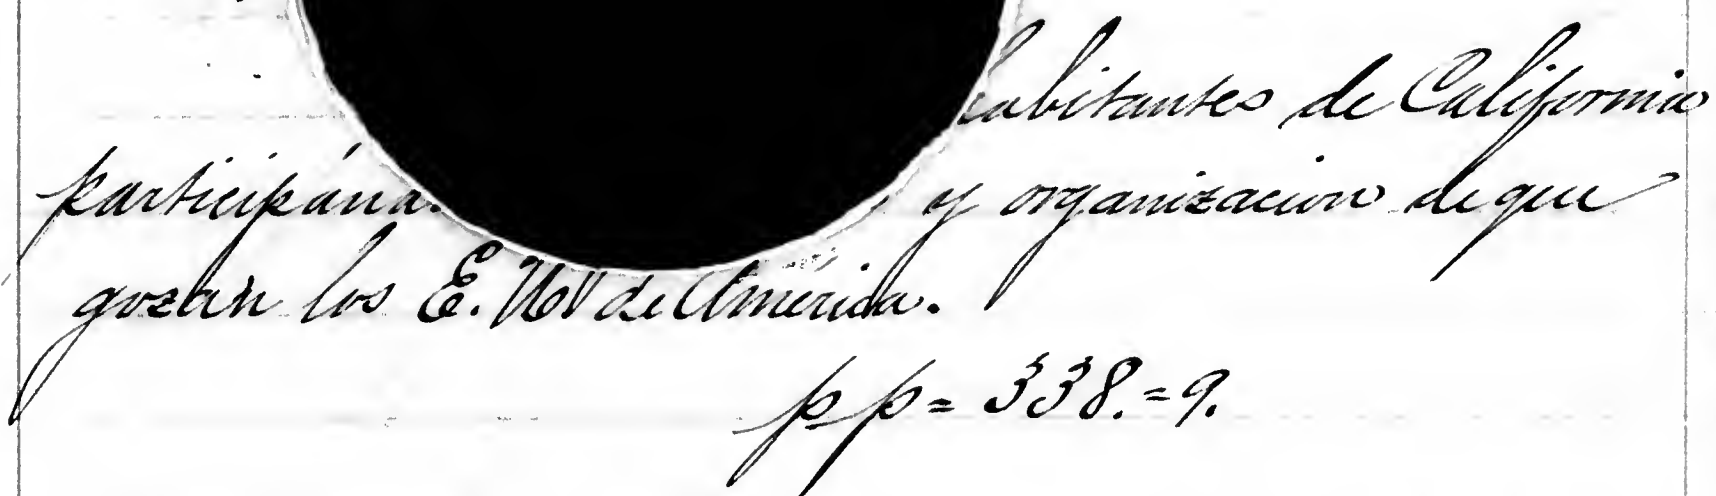 habitantes de California
y organizacion de que
gozan los E. U. de América.
pp= 338.=9.